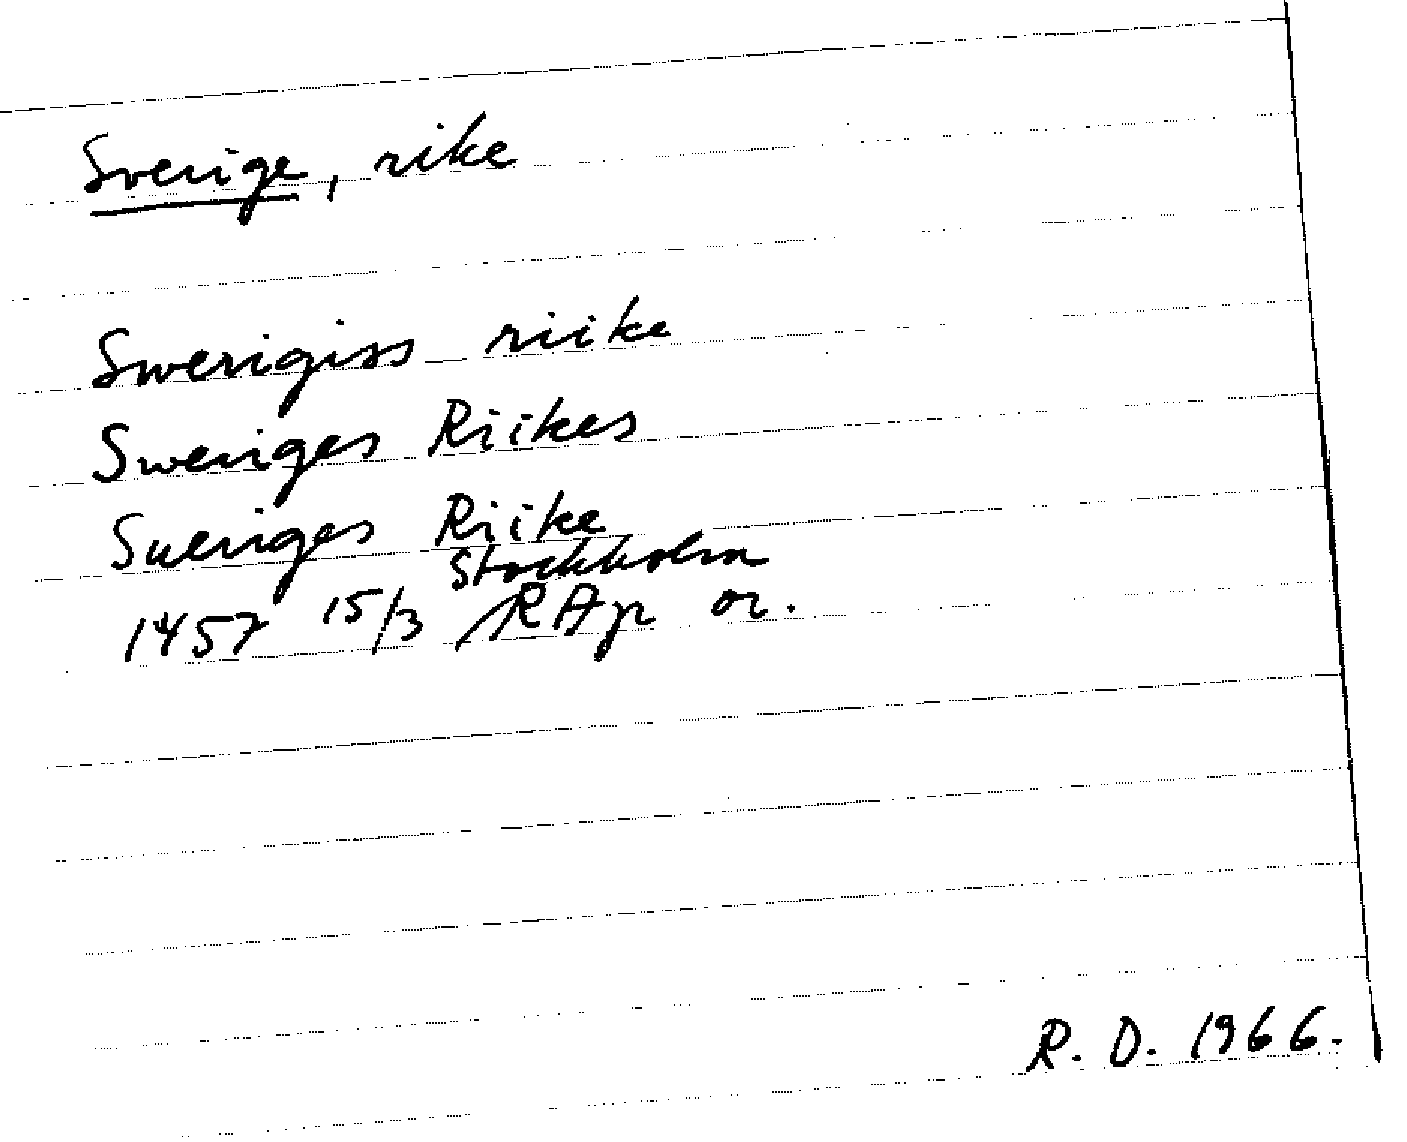 Sverige, rike
Swerigiss riike
Sweriges Riikes
Sueriges Riike
Stockholm
1457 15/3 RAp or.
R. D. 1966.